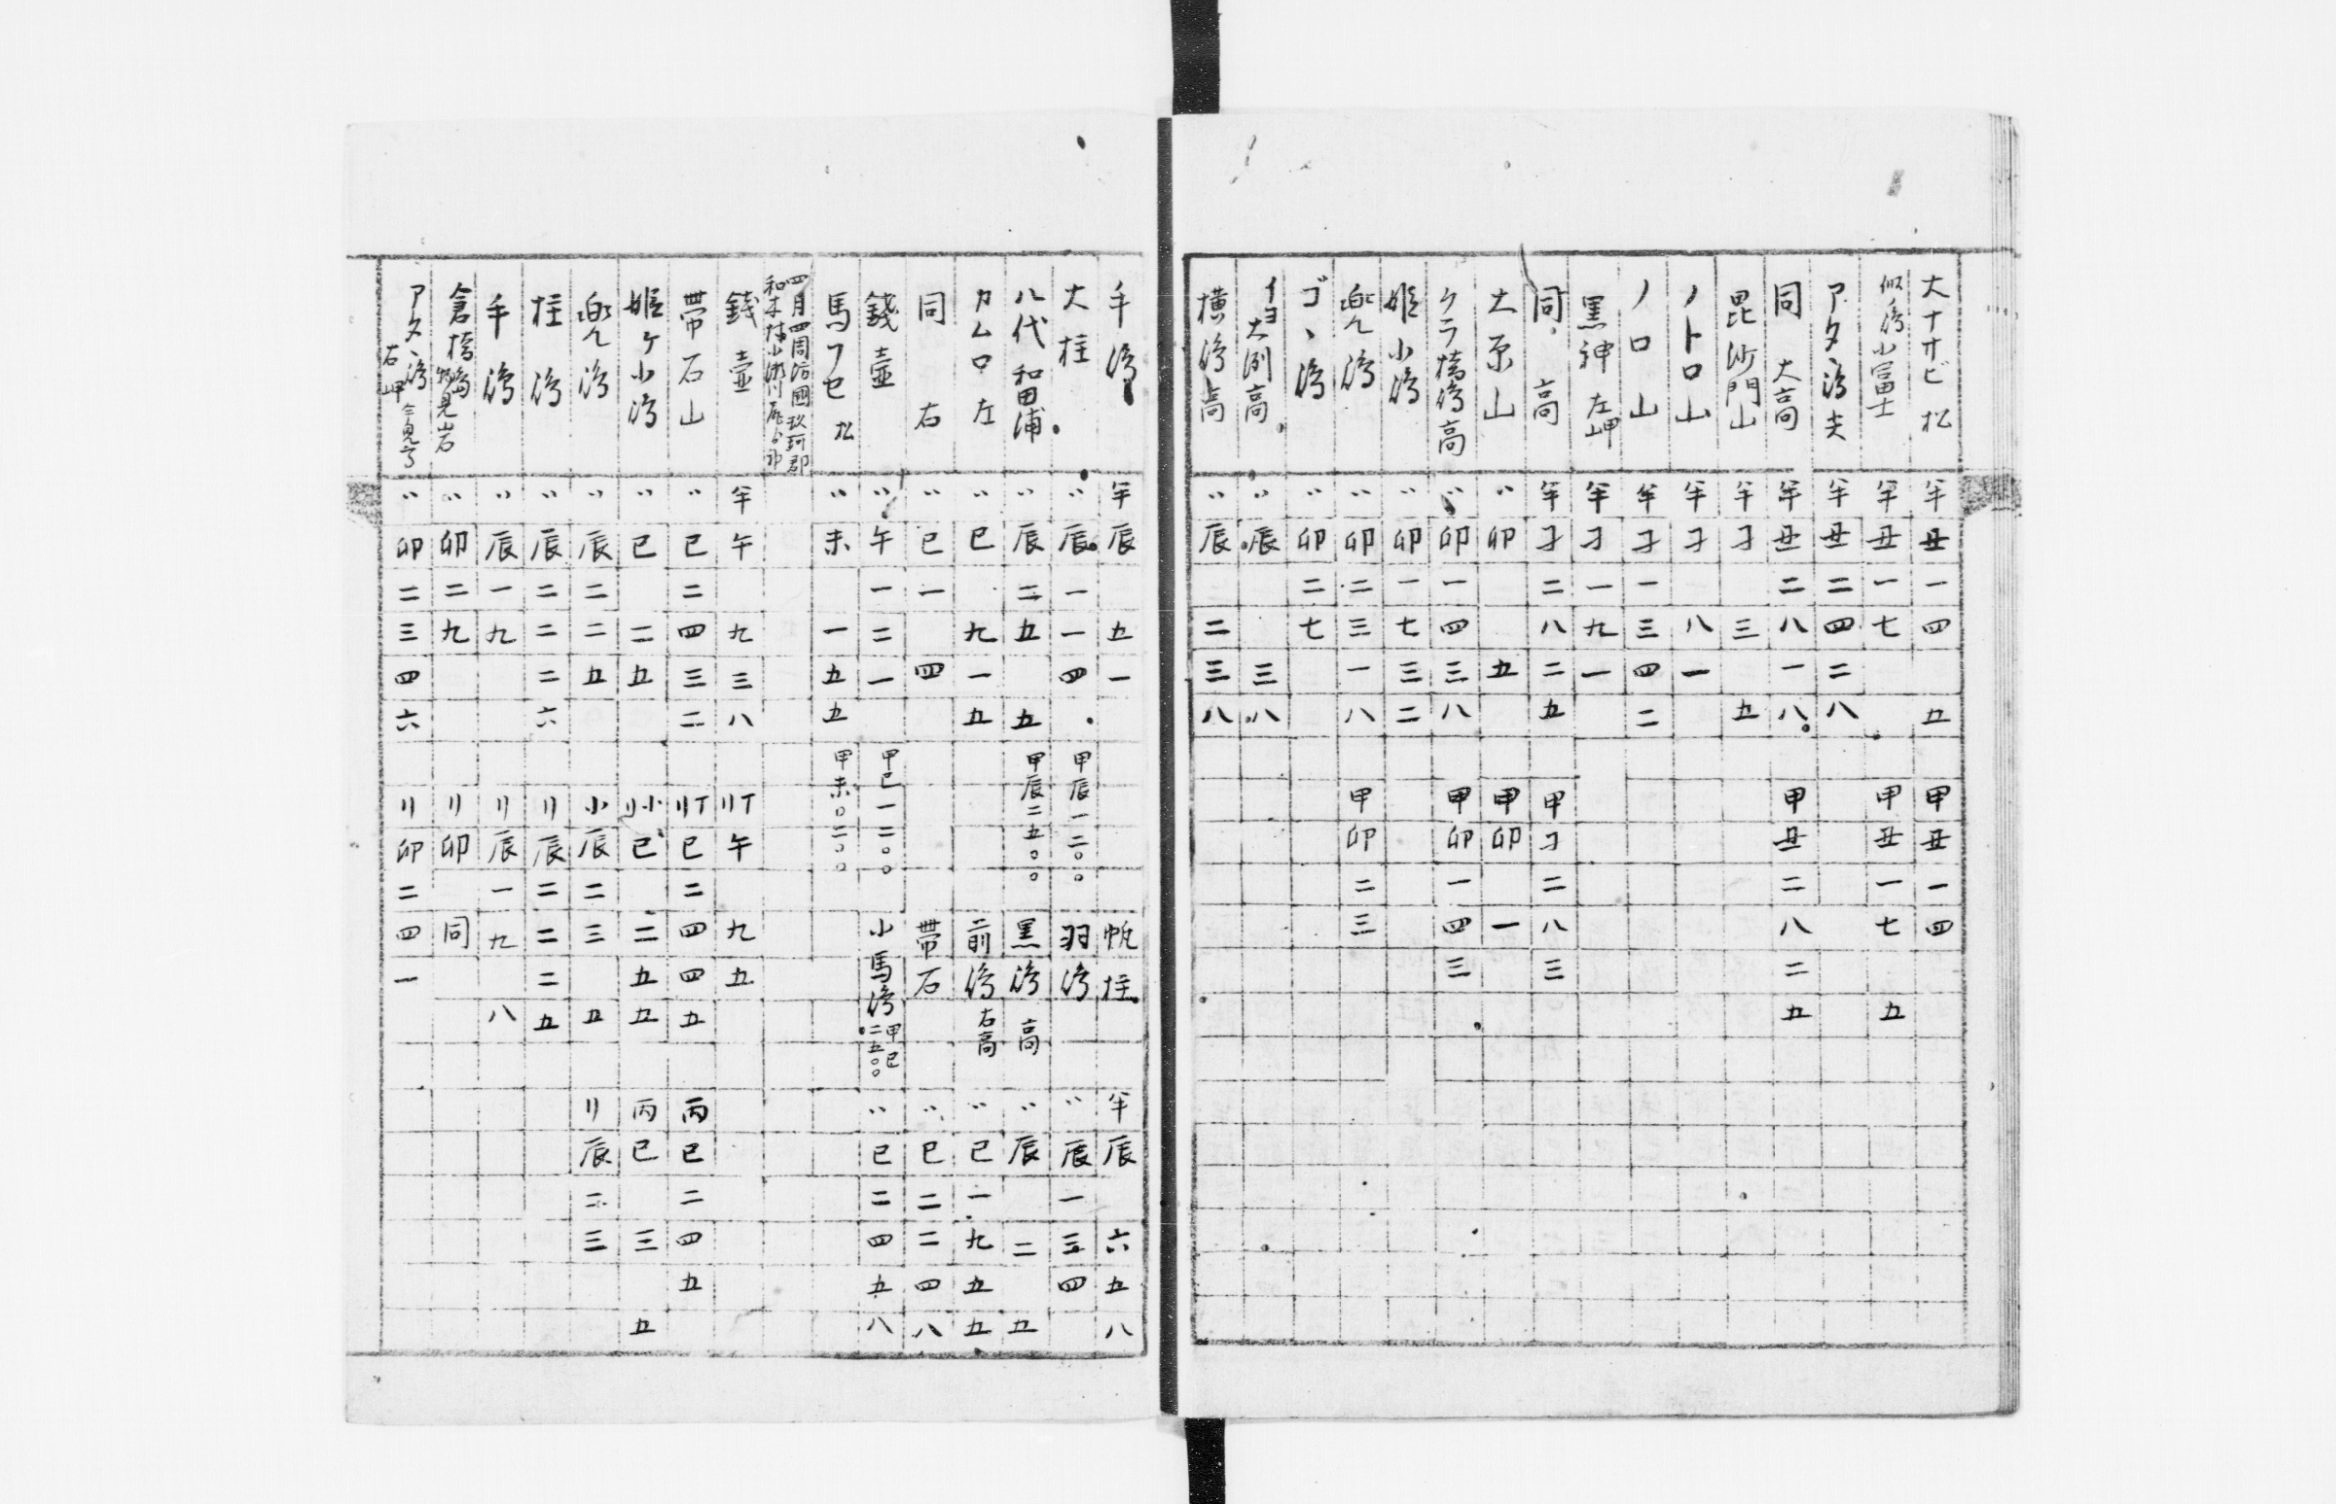 大ナオビ 松 半丑一四 五 甲丑一四
似嶋小富士 半丑一七 甲丑一七 五
アタヽ嶋 夫 半丑二四二八
同 大高 半丑二八一八 甲丑二八二五
毘沙門山 半子 三 五
ノトロ山 半子 八一
ノロ山 半子一三四二
黒神 左岬 半子一九一
同 高 半子二八二五 甲子二八三
大原山 〃卯 五 甲卯 一
クラ橋嶋高 〃卯一四三八 甲卯一四三
姫小嶋 〃卯一七三二
兜嶋 〃卯二三一八 甲卯二三
ゴヽ嶋 〃卯二七
イヨ大洲高 〃辰 三八
横嶋高 〃辰 二三八
手嶋 半辰 五一 帆柱 半辰 六五八
大柱 〃辰一一四 甲辰一二〇〇 羽嶋 〃辰一三四
八代 和田浦 〃辰二五 五 甲辰二五〇〇 黒嶋 高 〃辰 二 五
カムロ 左 〃巳 九一五 前嶋 右高 〃巳一九五五
同 右 〃巳一 四 帯石 〃巳二二四八
錢壷 〃午一二一 甲巳一二〇〇 小馬嶋 甲巳二五〇〇 〃巳二四五八
馬フセ 松 〃未 一五五 甲未〇二〇〇
四月四周防國玖珂郡
和木村小瀬川
錢壷 半午 九三八 リ丁午 九五
帯石山 〃巳二四三二 リ丁巳二四四五 丙巳二四五
姫ケ小嶋 〃巳 二五 リ小巳 二五五 丙巳 三 五
兜嶋 〃辰二二五 小辰二三 五 リ辰二三
柱嶋 〃辰二二二六 リ辰二二二五
手嶋 〃辰一九 リ辰一九 八
倉橋嶋 物見岩 〃卯二九 リ卯 同
アタヽ嶋 右岬 〃卯二三四六 リ卯二四一